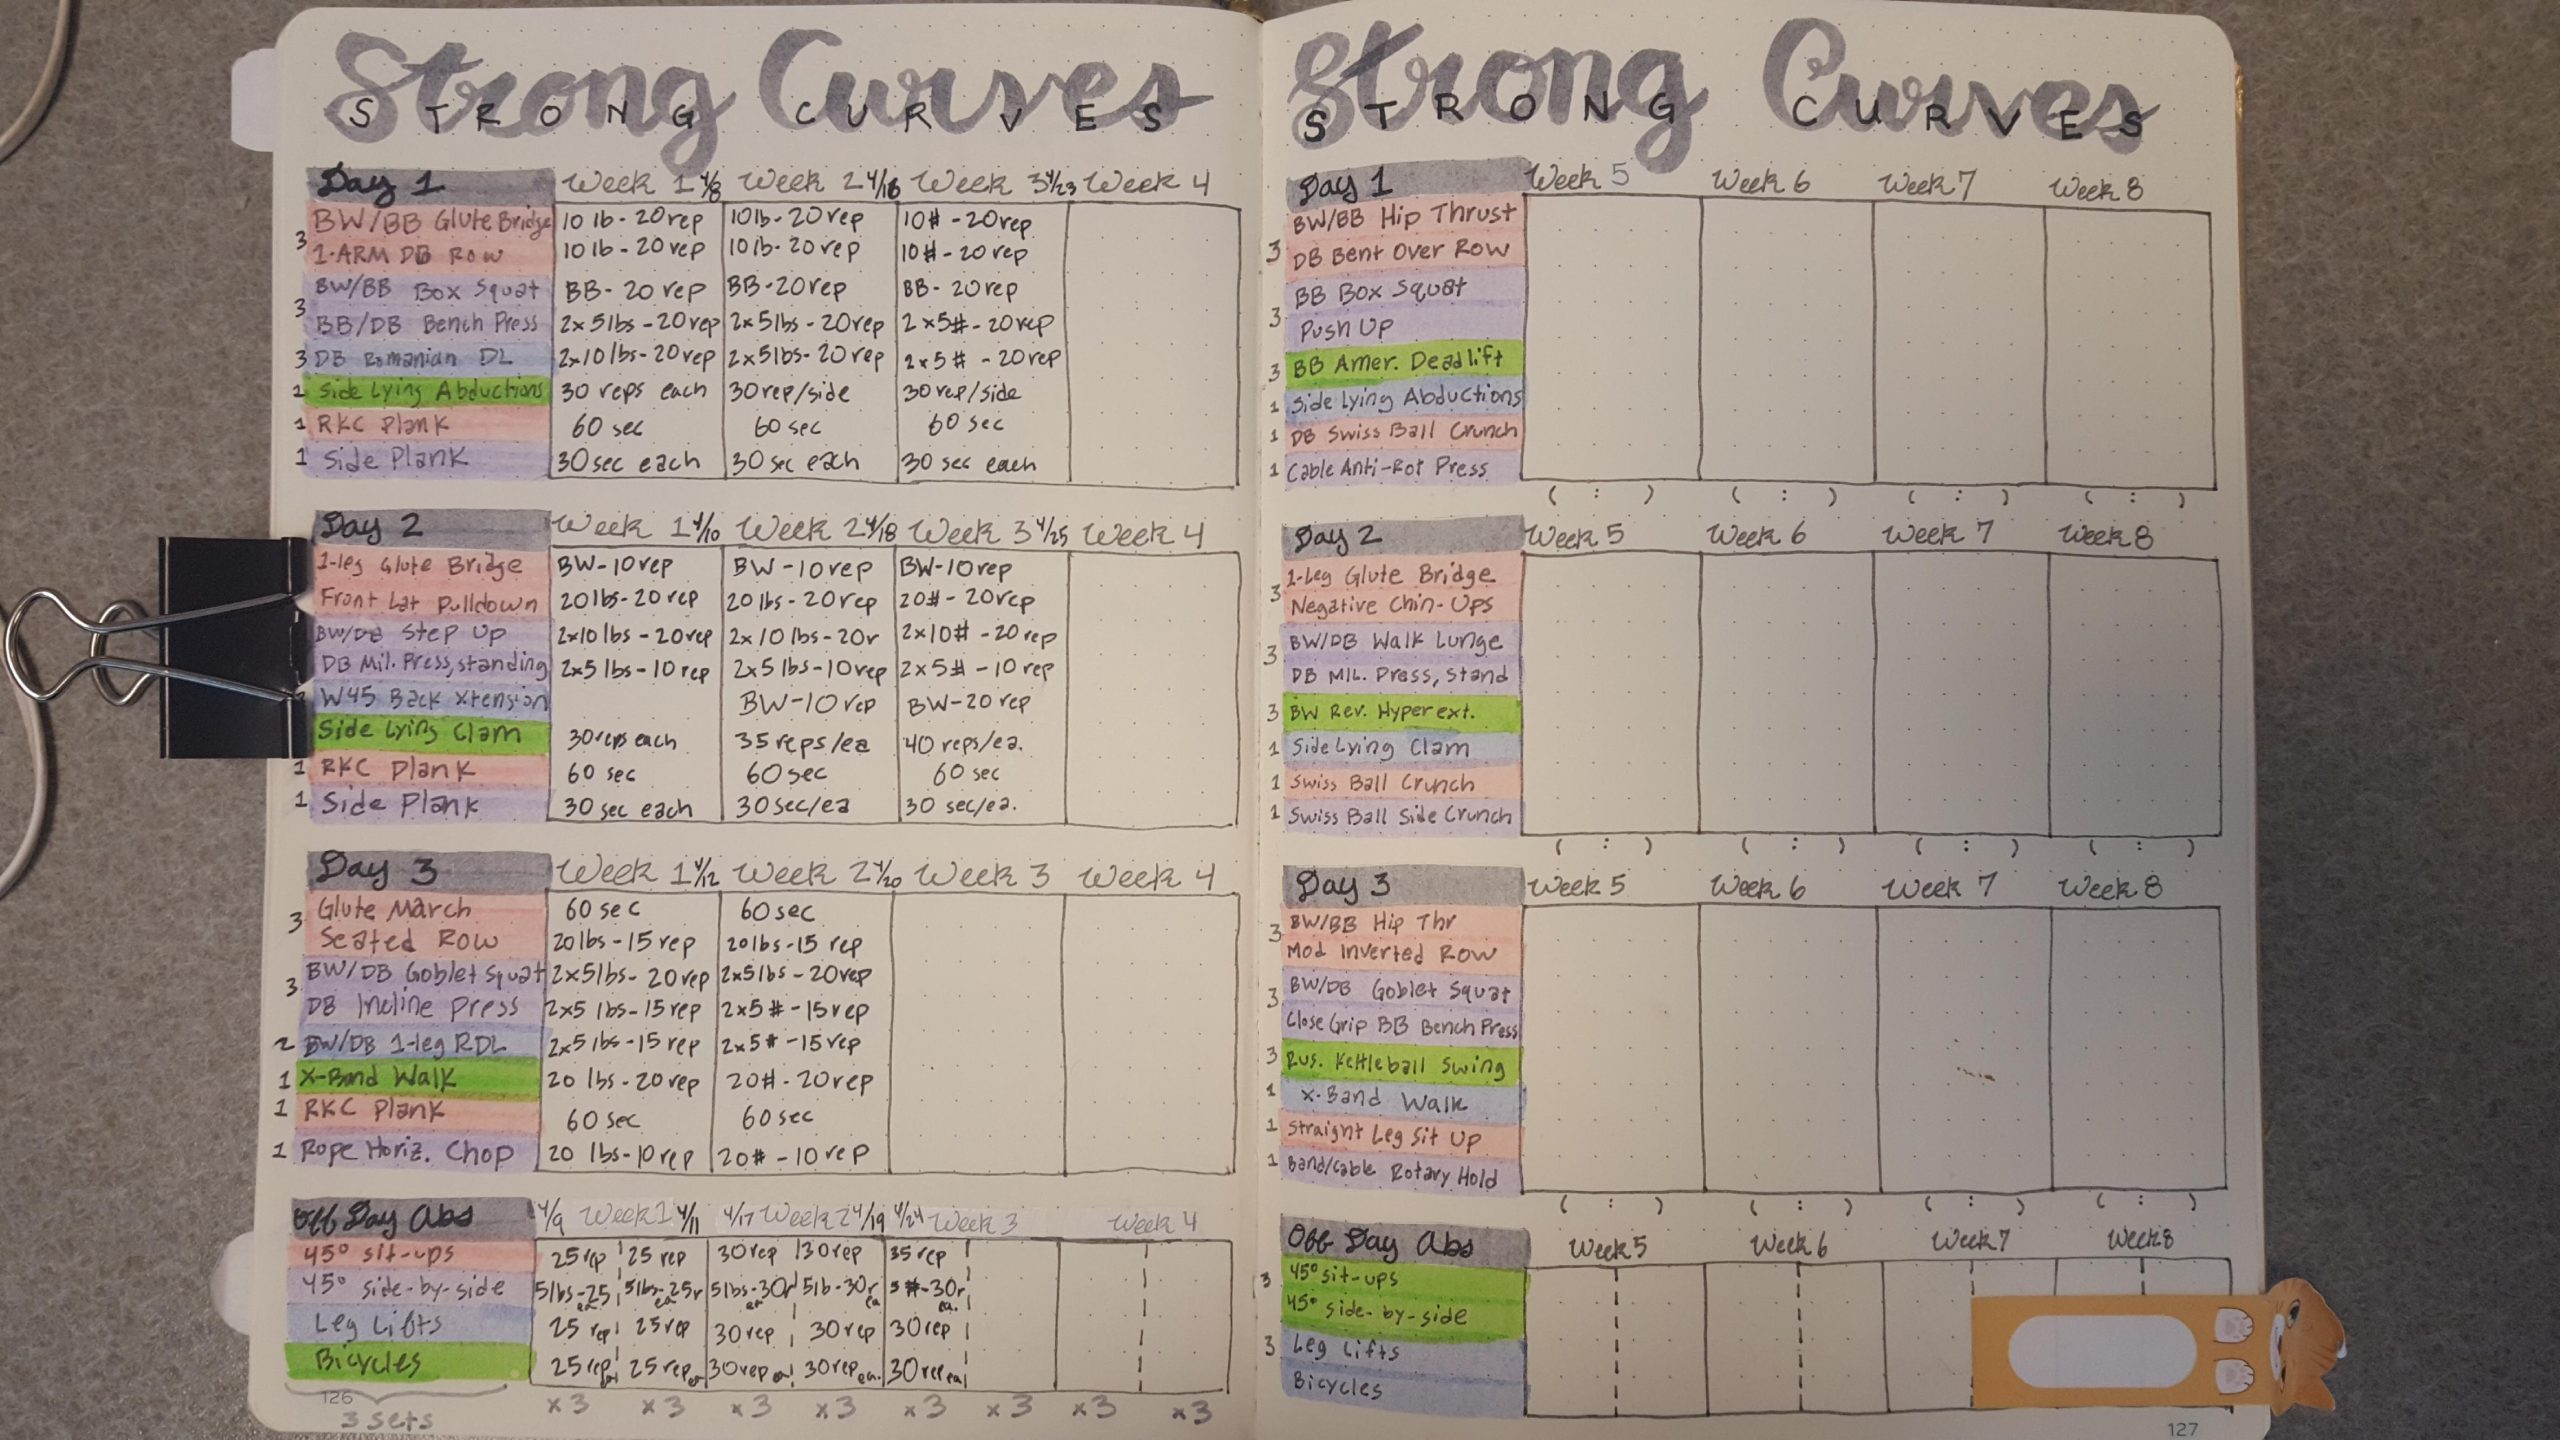 Strong Curves
STRONG CURVES
Day 1 Week 1 4/8 Week 2 4/16 Week 3 4/23 Week 4
3 BW/BB Glute Bridge 10 lb - 20 rep 10lb - 20 rep 10# - 20 rep
1-ARM DB Row 10 lb - 20 rep 10lb - 20 rep 10# - 20 rep
3 BW/BB Box Squat BB - 20 rep BB - 20 rep BB - 20 rep
BB/DB Bench Press 2x5lbs - 20 rep 2x5lbs - 20 rep 2x5# - 20 rep
3 DB Romanian DL 2x10 lbs - 20 rep 2x5lbs - 20 rep 2x5# - 20 rep
1 Side Lying Abductions 30 reps each 30 rep/side 30 rep/side
1 RKC Plank 60 sec 60 sec 60 sec
1 Side Plank 30 sec each 30 sec each 30 sec each
Day 2 Week 1 4/10 Week 2 4/18 Week 3 4/25 Week 4
1-leg Glute Bridge BW - 10 rep BW - 10 rep BW - 10 rep
Front Lat Pulldown 20lbs - 20 rep 20 lbs - 20 rep 20# - 20 rep
BW/DB Step Up 2x10 lbs - 20 rep 2x10 lbs - 20r 2x10# - 20 rep
DB Mil. Press, standing 2x5 lbs - 10 rep 2x5 lbs - 10 rep 2x5# - 10 rep
W45 Back Xtension BW - 10 rep BW - 20 rep
Side Lying Clam 30 reps each 35 reps/ea 40 reps/ea.
1 RKC Plank 60 sec 60 sec 60 sec
1 Side Plank 30 sec each 30 sec/ea 30 sec/ea.
Day 3 Week 1 4/12 Week 2 4/20 Week 3 Week 4
3 Glute March 60 sec 60 sec
Seated Row 20lbs - 15 rep 20lbs - 15 rep
3 BW/DB Goblet Squat 2x5lbs - 20 rep 2x5lbs - 20 rep
DB Incline Press 2x5 lbs - 15 rep 2x5# - 15 rep
2 BW/DB 1-leg RDL 2x5 lbs - 15 rep 2x5# - 15 rep
1 X-Band Walk 20 lbs - 20 rep 20# - 20 rep
1 RKC Plank 60 sec 60 sec
1 Rope Horiz. Chop 20 lbs - 10 rep 20# - 10 rep
Off Day Abs 4/9 Week 1 4/11 4/17 Week 2 4/19 4/24 Week 3 Week 4
45° sit-ups 25 rep 25 rep 30 rep 30 rep 35 rep
45° side-by-side 5lbs-25 ea 5lbs-25r ea 5lbs-30r ea 5lb-30r ea 5#-30r ea.
Leg Lifts 25 rep 25 rep 30 rep 30 rep 30 rep
Bicycles 25 rep ea 25 rep ea 30 rep ea 30 rep ea. 30 rep ea
126
3 sets x3 x3 x3 x3 x3 x3 x3 x3
Strong Curves
STRONG CURVES
Day 1 Week 5 Week 6 Week 7 Week 8
BW/BB Hip Thrust
3 DB Bent Over Row
BB Box Squat
3 Push Up
3 BB Amer. Deadlift
1 Side Lying Abductions
1 DB Swiss Ball Crunch
1 Cable Anti-Rot Press
( : ) ( : ) ( : ) ( : )
Day 2 Week 5 Week 6 Week 7 Week 8
3 1-Leg Glute Bridge
Negative Chin-Ups
3 BW/DB Walk Lunge
DB Mil. Press, Stand
3 BW Rev. Hyperext.
1 Side Lying Clam
1 Swiss Ball Crunch
1 Swiss Ball Side Crunch
( : ) ( : ) ( : ) ( : )
Day 3 Week 5 Week 6 Week 7 Week 8
3 BW/BB Hip Thr
Mod Inverted Row
3 BW/DB Goblet Squat
Close Grip BB Bench Press
3 Rus. Kettleball Swing
1 X-Band Walk
1 Straight Leg Sit Up
1 Band/Cable Rotary Hold
( : ) ( : ) ( : ) ( : )
Off Day Abs Week 5 Week 6 Week 7 Week 8
3 45° sit-ups
45° side-by-side
3 Leg Lifts
Bicycles
127